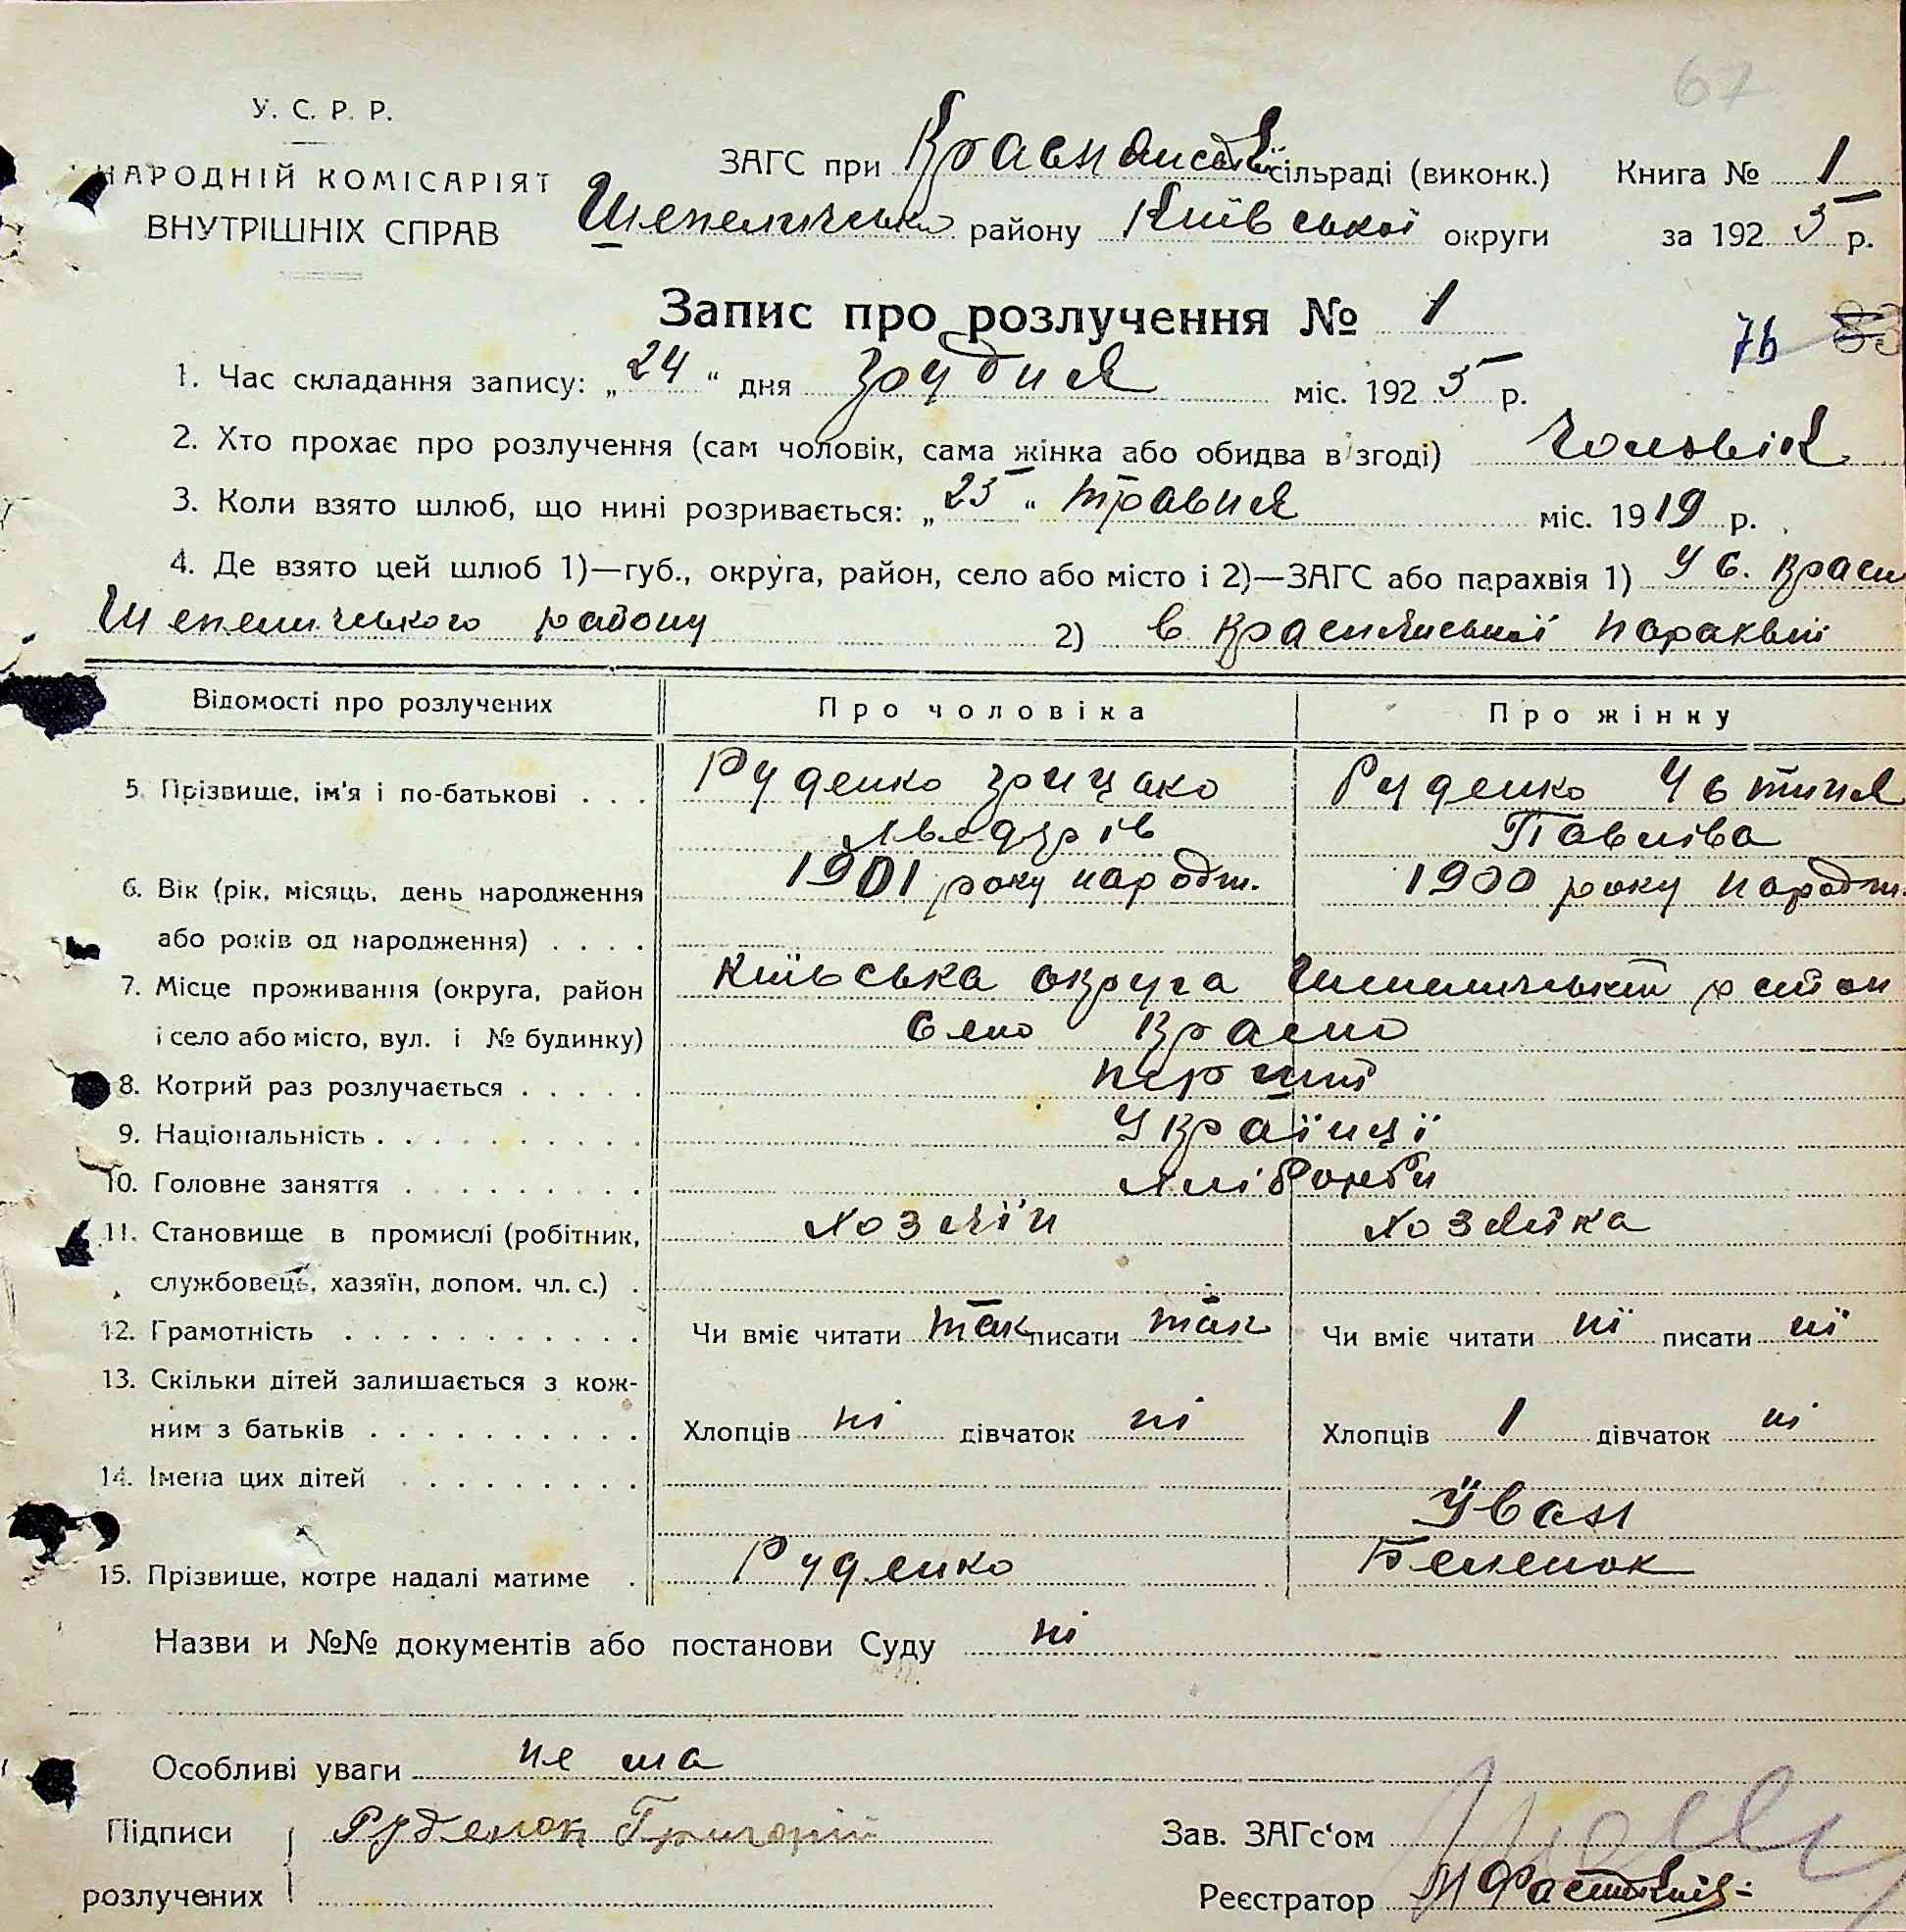 67
У. С. Р. Р.
НАРОДНІЙ КОМІСАРІЯТ
ВНУТРІШНІХ СПРАВ
ЗАГС при сільраді (виконк.) Книга № 1
району Київської округи за 1925 р.
Запис про розлучення № 1
76 83
1. Час складання запису: „24“ дня Грудня міс. 1925 р.
2. Хто прохає про розлучення (сам чоловік, сама жінка або обидва в згоді) Чоловік
3. Коли взято шлюб, що нині розривається: „25“ травня міс. 1919 р.
4. Де взято цей шлюб 1)—губ., округа, район, село або місто і 2)—ЗАГС або парахвія 1) У с. Красн
Шепеличського району 2) в Краснянській парахвії
Відомості про розлучених Про чоловіка Про жінку
5. Прізвище, ім'я і по-батькові . . . Руденко Грицько Руденко Устиня
Павліва
6. Вік (рік, місяць, день народження 1901 року народж. 1900 року народж.
або років од народження) . . . .
7. Місце проживання (округа, район Київська округа Шепеличський район
і село або місто, вул. і № будинку) Село Красно
8. Котрий раз розлучається . . . . . перший
9. Національність . . . . . . . . . . Українці
10. Головне заняття . . . . . . . . .
11. Становище в промислі (робітник, хозяїн хозяйка
службовець, хазяїн, допом. чл. с.) .
12. Грамотність . . . . . . . . . . . Чи вміє читати так писати так Чи вміє читати ні писати ні
13. Скільки дітей залишається з кож-
ним з батьків . . . . . . . . . . Хлопців ні дівчаток ні Хлопців 1 дівчаток ні
14. Імена цих дітей . . . . . . . . .
Їван
15. Прізвище, котре надалі матиме . Руденко
Назви и №№ документів або постанови Суду ні
Особливі уваги не ма
Підписи Руденок Григорій Зав. ЗАГс‘ом
розлучених Реєстратор